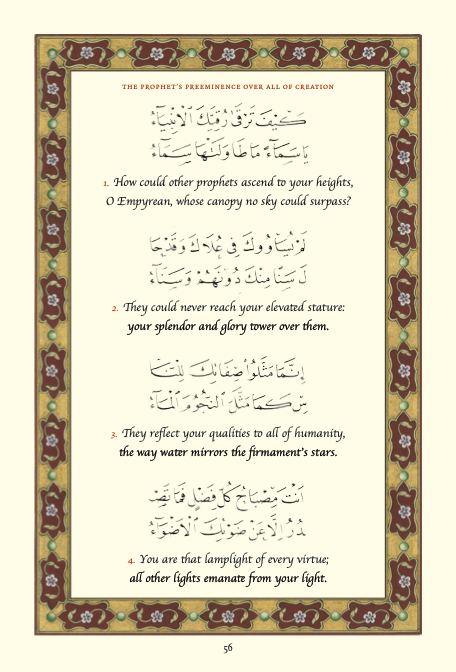 THE PROPHET'S PREEMINENCE OVER ALL OF CREATION
كَيْفَ تَرْقَىٰ رُقِيَّكَ الْأَنْبِيَاءُ
يَا سَمَاءً مَا طَاوَلَتْهَا سَمَاءُ
1. How could other prophets ascend to your heights,
O Empyrean, whose canopy no sky could surpass?
لَمْ يُسَاوُوكَ فِي عُلَاكَ وَقَدْ حَا
لَ سَنًا مِنْكَ دُونَهُمْ وَسَنَاءُ
2. They could never reach your elevated stature:
your splendor and glory tower over them.
إِنَّمَا مَثَّلُوا صِفَاتِكَ لِلنَّا
سِ كَمَا مَثَّلَ النُّجُومَ الْمَاءُ
3. They reflect your qualities to all of humanity,
the way water mirrors the firmament's stars.
أَنْتَ مِصْبَاحُ كُلِّ فَضْلٍ فَمَا تَصْ
دُرُ إِلَّا عَنْ ضَوْئِكَ الْأَضْوَاءُ
4. You are that lamplight of every virtue;
all other lights emanate from your light.
56